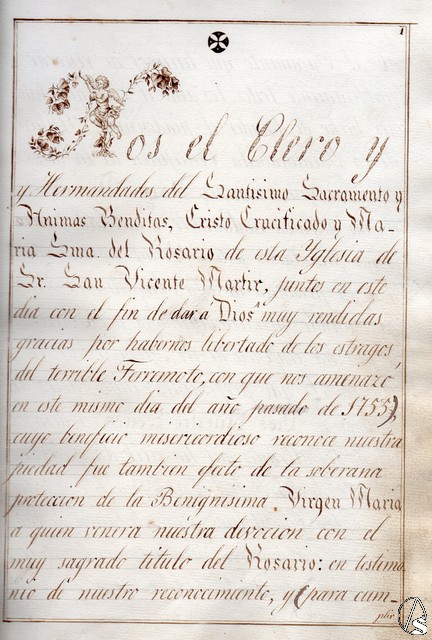 1
Nos el Clero y
y Hermandades del Santisimo Sacramento y
Animas Benditas, Cristo Crucificado y Ma-
ria Sma. del Rosario de esta Yglesia de
Sr. San Vicente Martir, juntos en este
dia con el fin de dar a Dios muy rendidas
gracias por habernos libertado de los estragos
del terrible Terremoto, con que nos amenazó
en este mismo dia del año pasado de 1755)
cuyo beneficio misericordioso reconoce nuestra
piedad fue tambien efecto de la soberana
proteccion de la Benignisima Virgen Maria
a quien venera nuestra devocion con el
muy sagrado titulo del Rosario: en testimo
nio de nuestro reconocimiento, y (para cum-
plir